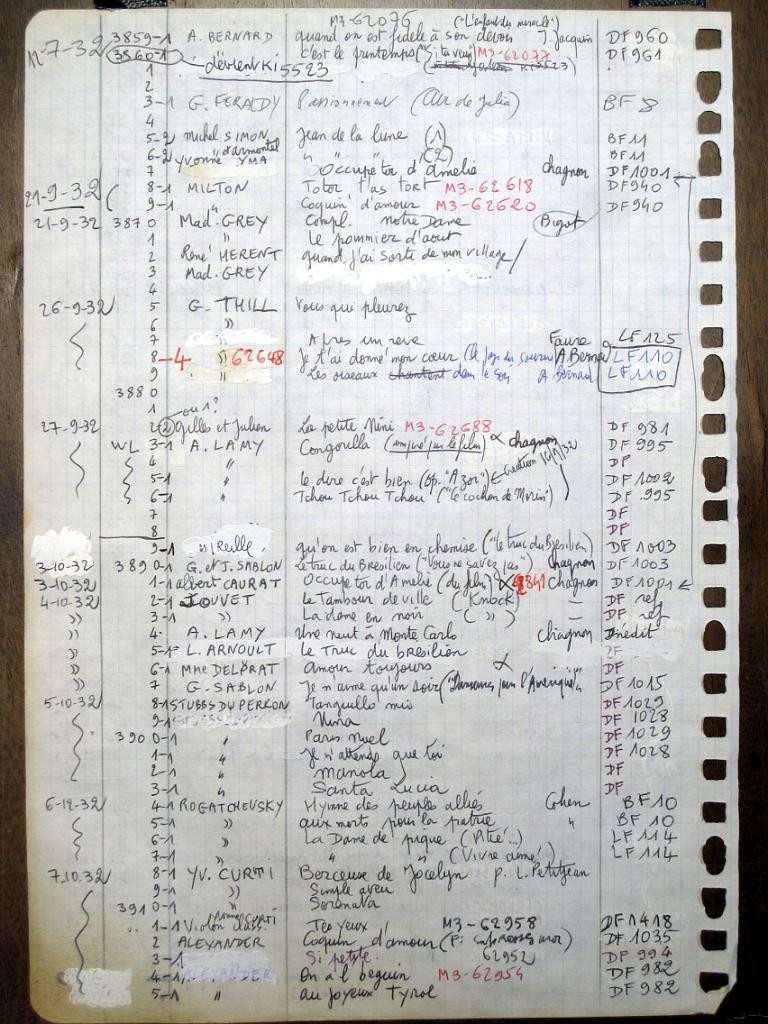 M3-62076 ("L'enfant du miracle")
12-7-32 3859-1 A. BERNARD quand on est fidèle à son devoir J. Jacquin DF 960
3860-1 c'est le printemps ("Si tu veux") M3-62077 DF 961
1 devient Ki5523
2
3-1 G. FERALDY Passionnement (Air de Julia) BF 8
4
5-2 michel SIMON Jean de la lune (1) BF 11
6-2 " (2) BF 11
7 yvonne YMA Occupe toi d'amelie chagnon DF 1001
21-9-32 8-1 MILTON Totor t'as tort M3-62618 DF 940
9-1 " Coquin d'amour M3-62620 DF 940
21-9-32 3870 Mad. GREY Compl. notre Dame Bigot
1 " Le pommier d'aout
2 René HERENT quand j'ai sorti de mon village
3 Mad. GREY
4
26-9-32 5 G. THILL Vous qui pleurez
6 "
7 " Apres un reve Faure LF 125
8-4 " 62648 Je t'ai donné mon coeur A. Bernard LF 110
9 " Les oiseaux dans le A. Bernard LF 110
3880
1 ou 1?
27-9-32 2 (2) Gilles et Julien La petite Nini M3-62688 DF 981
WL 3-1 A. LAMY Congorilla (inspiré par le film) chagnon DF 995
4 " DF
5-1 " le dire c'est bien (op. "Azor") création DF 1002
6-1 " Tchou Tchou Tchou ("le cochon de Morin") DF 995
7 DF
8 DF
9-1 Mireille qu'on est bien en chemise ("le truc du Bresilien) DF 1003
3-10-32 3890-1 G. et J. SABLON Le truc du Bresilien chagnon DF 1003
3-10-32 1-1 albert CAURAT Occupe toi d'Amelie (du film) Chagnon DF 1001
4-10-32 2-1 JOUVET le Tambour de ville (Knock) — DF ref
" 3-1 " La dame en noir (") — DF ref
" 4. A. LAMY Une nuit à Monte Carlo chiagnon inédit
" 5-1 L. ARNOULT le Truc du bresilien
" 6-1 Mme DELPRAT amour toujours DF
" 7 G. SABLON Je n'aime qu'un soir DF 1015
5-10-32 8-1 STUBBS DU PERRON Tanguillo mio DF 1029
9-1 Nina DF 1028
3900-1 " Paris Nuel DF 1029
1-1 " Je n'attends que toi DF 1028
2-1 " Manola DF
3-1 " Santa Lucia DF
6-12-32 4-1 ROGATCHEVSKY Hymne des peuples alliés Cohen BF 10
5-1 " aux morts pour la patrie " BF 10
6-1 " La Dame de pique (Pitié...) LF 114
7-1 " " (Vivre aimé) LF 114
7.10.32 8-1 YV. CURTI Berceuse de Jocelyn p. L. Petitjean
9-1 " Simple aveu
3910-1 " Serenata
1-1 Violon class. CURTI Tes yeux M3-62958 DF 1418
2 ALEXANDER Coquin d'amour DF 1035
3-1 Si petite 62952 DF 994
4-1 ALEXANDER On a l'beguin M3-62954 DF 982
5-1 " au Joyeux Tyrol DF 982